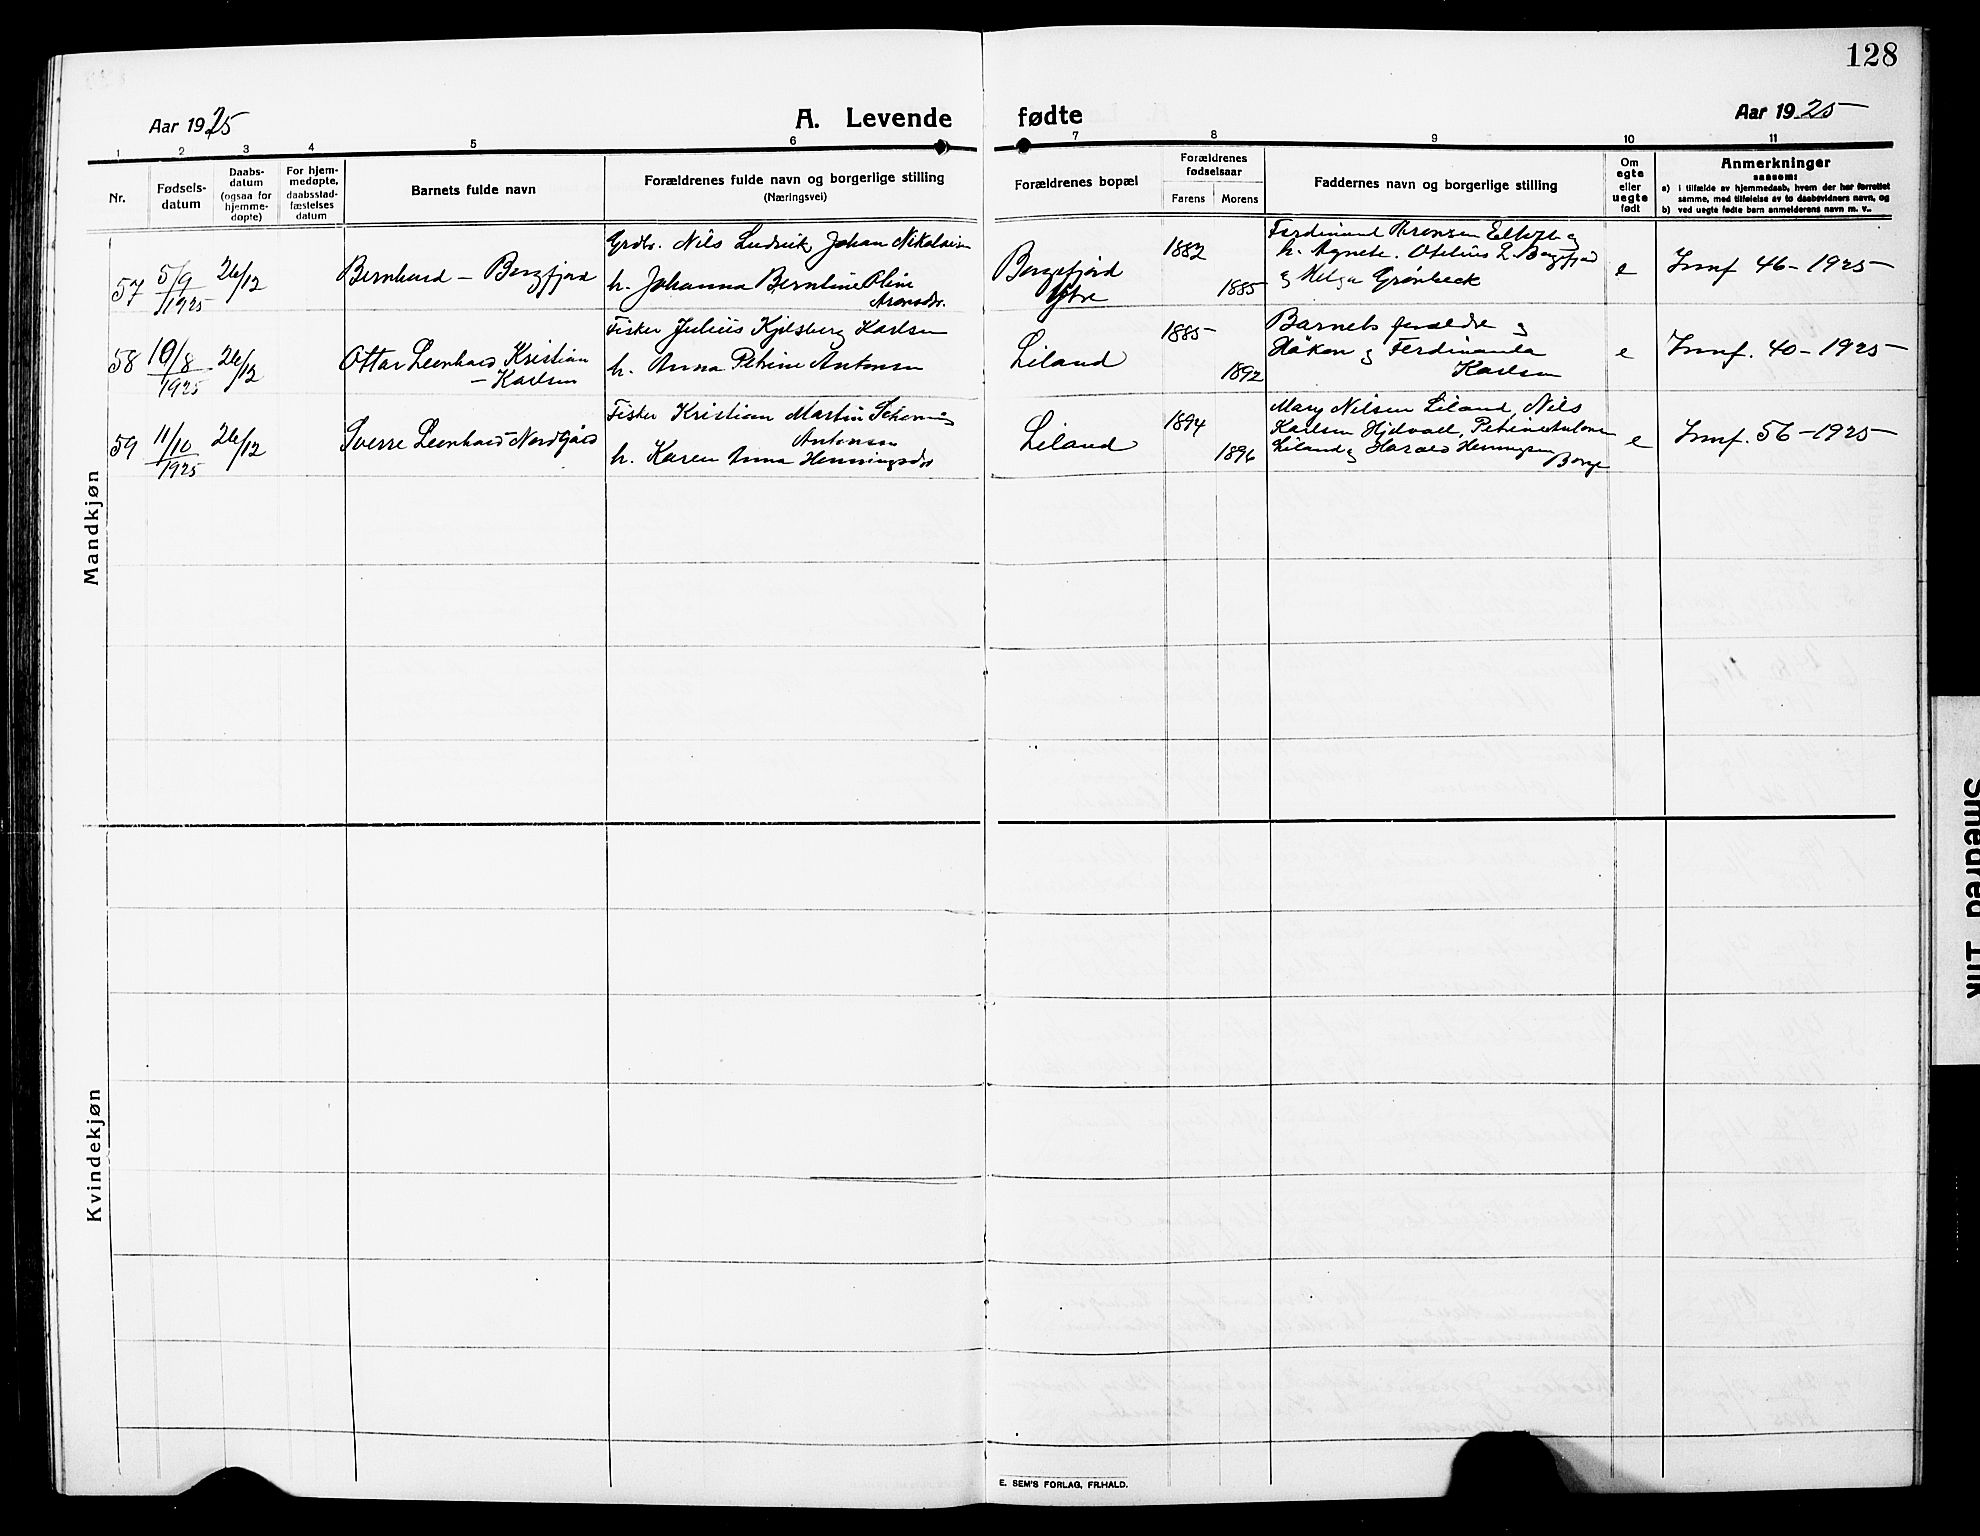 128
Aar 1925
A. Levende fødte
Aar 1925
1 2 3 4 5 6 7 8 9 10 11
Nr.
Fødsels-
datum
Daabs-
datum
(ogsaa for
hjemme-
døpte)
For hjem-
medøpte,
daabsstad-
fæstelses
datum
Barnets fulde navn
Forældrenes fulde navn og borgerlige stilling
(Næringsvei)
Forældrenes bopæl
Forældrenes
fødselsaar
Farens Morens
Faddernes navn og borgerlige stilling
Om
egte
eller
uegte
født
Anmerkninger
saasom:
a) i tilfælde av hjemmedaab, hvem der har forrettet
samme, med tilføielse av to daabsvidners navn, og
b) ved uegte fødte barn anmelderens navn m. v..
Mandkjøn
57 5/9 1925 26/12
Bernhard – Borgfjord
Grdbr. Nils Ludvik Johan Nikolaisen
h. Johanna Berntine Oline
Aronsdr.
Borgefjord
Ytre
1882
1885
Ferdinand Aronsen
h. Agnete. Otelius L. Borgfjord
og Helga Grønbeck
e
Innf 46–1925
58 10/8 1925 26/12
Ottar Leonhard Kristian
– Karlsen
Fisker Julius Kjilsberg Karlsen
h. Anna Petrine Antonsen
Liland
1885
1892
Barnets forældre og
Håkon og Ferdinanda
Karlsen
e
Innf. 40–1925
59 11/10 1925 26/12
Sverre Leonhard Nordgård
Fisker Kristian Martin
Antonsen
h. Karen Anna Henningsdr
Liland
1894
1896
Mary Nilsen Liland, Nils
Karlsen Petrine Antonsen
Liland og Harald Henningsen
Borge
e
Innf. 56–1925
Kvindekjøn
E. SEM'S FORLAG, FR.HALD.